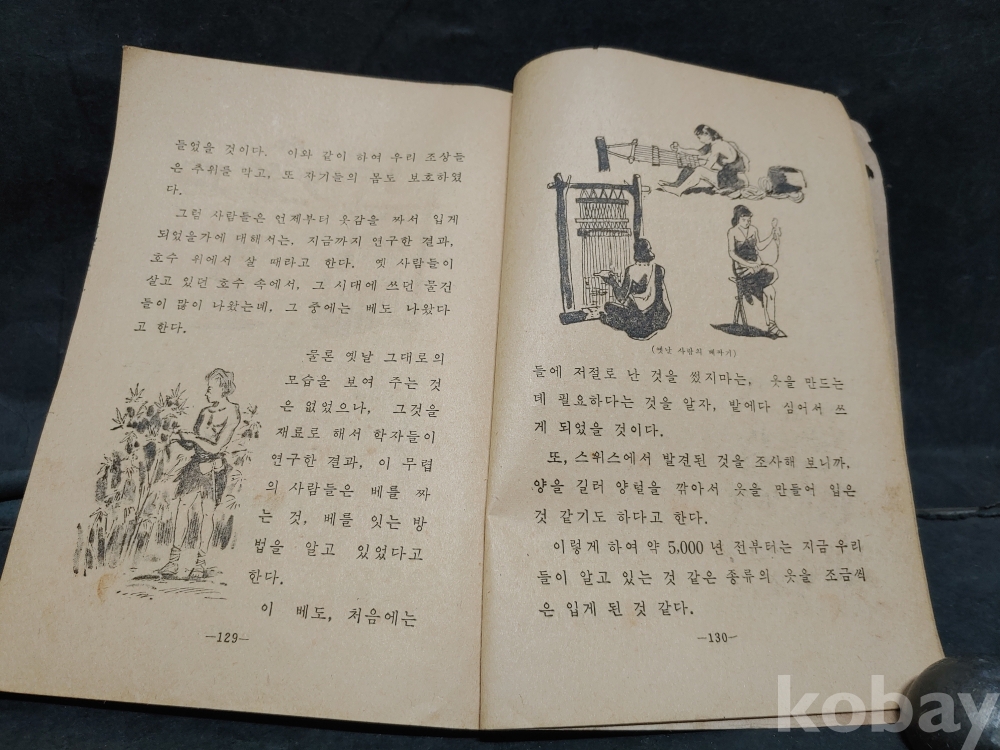 들었을 것이다. 이와 같이 하여 우리 조상들
은 추위를 막고, 또 자기들의 몸도 보호하였
다.
그럼 사람들은 언제부터 옷감을 짜서 입게
되었을가에 대해서는, 지금까지 연구한 결과,
호수 위에서 살 때라고 한다. 옛 사람들이
살고 있던 호수 속에서, 그 시대에 쓰던 물건
들이 많이 나왔는데, 그 중에는 베도 나왔다
고 한다.
물론 옛날 그대로의
모습을 보여 주는 것
은 없었으나, 그것을
재료로 해서 학자들이
연구한 결과, 이 무렵
의 사람들은 베를 짜
는 것, 베를 잇는 방
법을 알고 있었다고
한다.
이 베도, 처음에는
—129—
(옛날 사람의 베짜기)
들에 저절로 난 것을 썼지마는, 옷을 만드는
데 필요하다는 것을 알자, 밭에다 심어서 쓰
게 되었을 것이다.
또, 스위스에서 발견된 것을 조사해 보니까,
양을 길러 양털을 깎아서 옷을 만들어 입은
것 같기도 하다고 한다.
이렇게 하여 약 5,000 년 전부터는 지금 우리
들이 알고 있는 것 같은 종류의 옷을 조금씩
은 입게 된 것 같다.
—130—
kobay